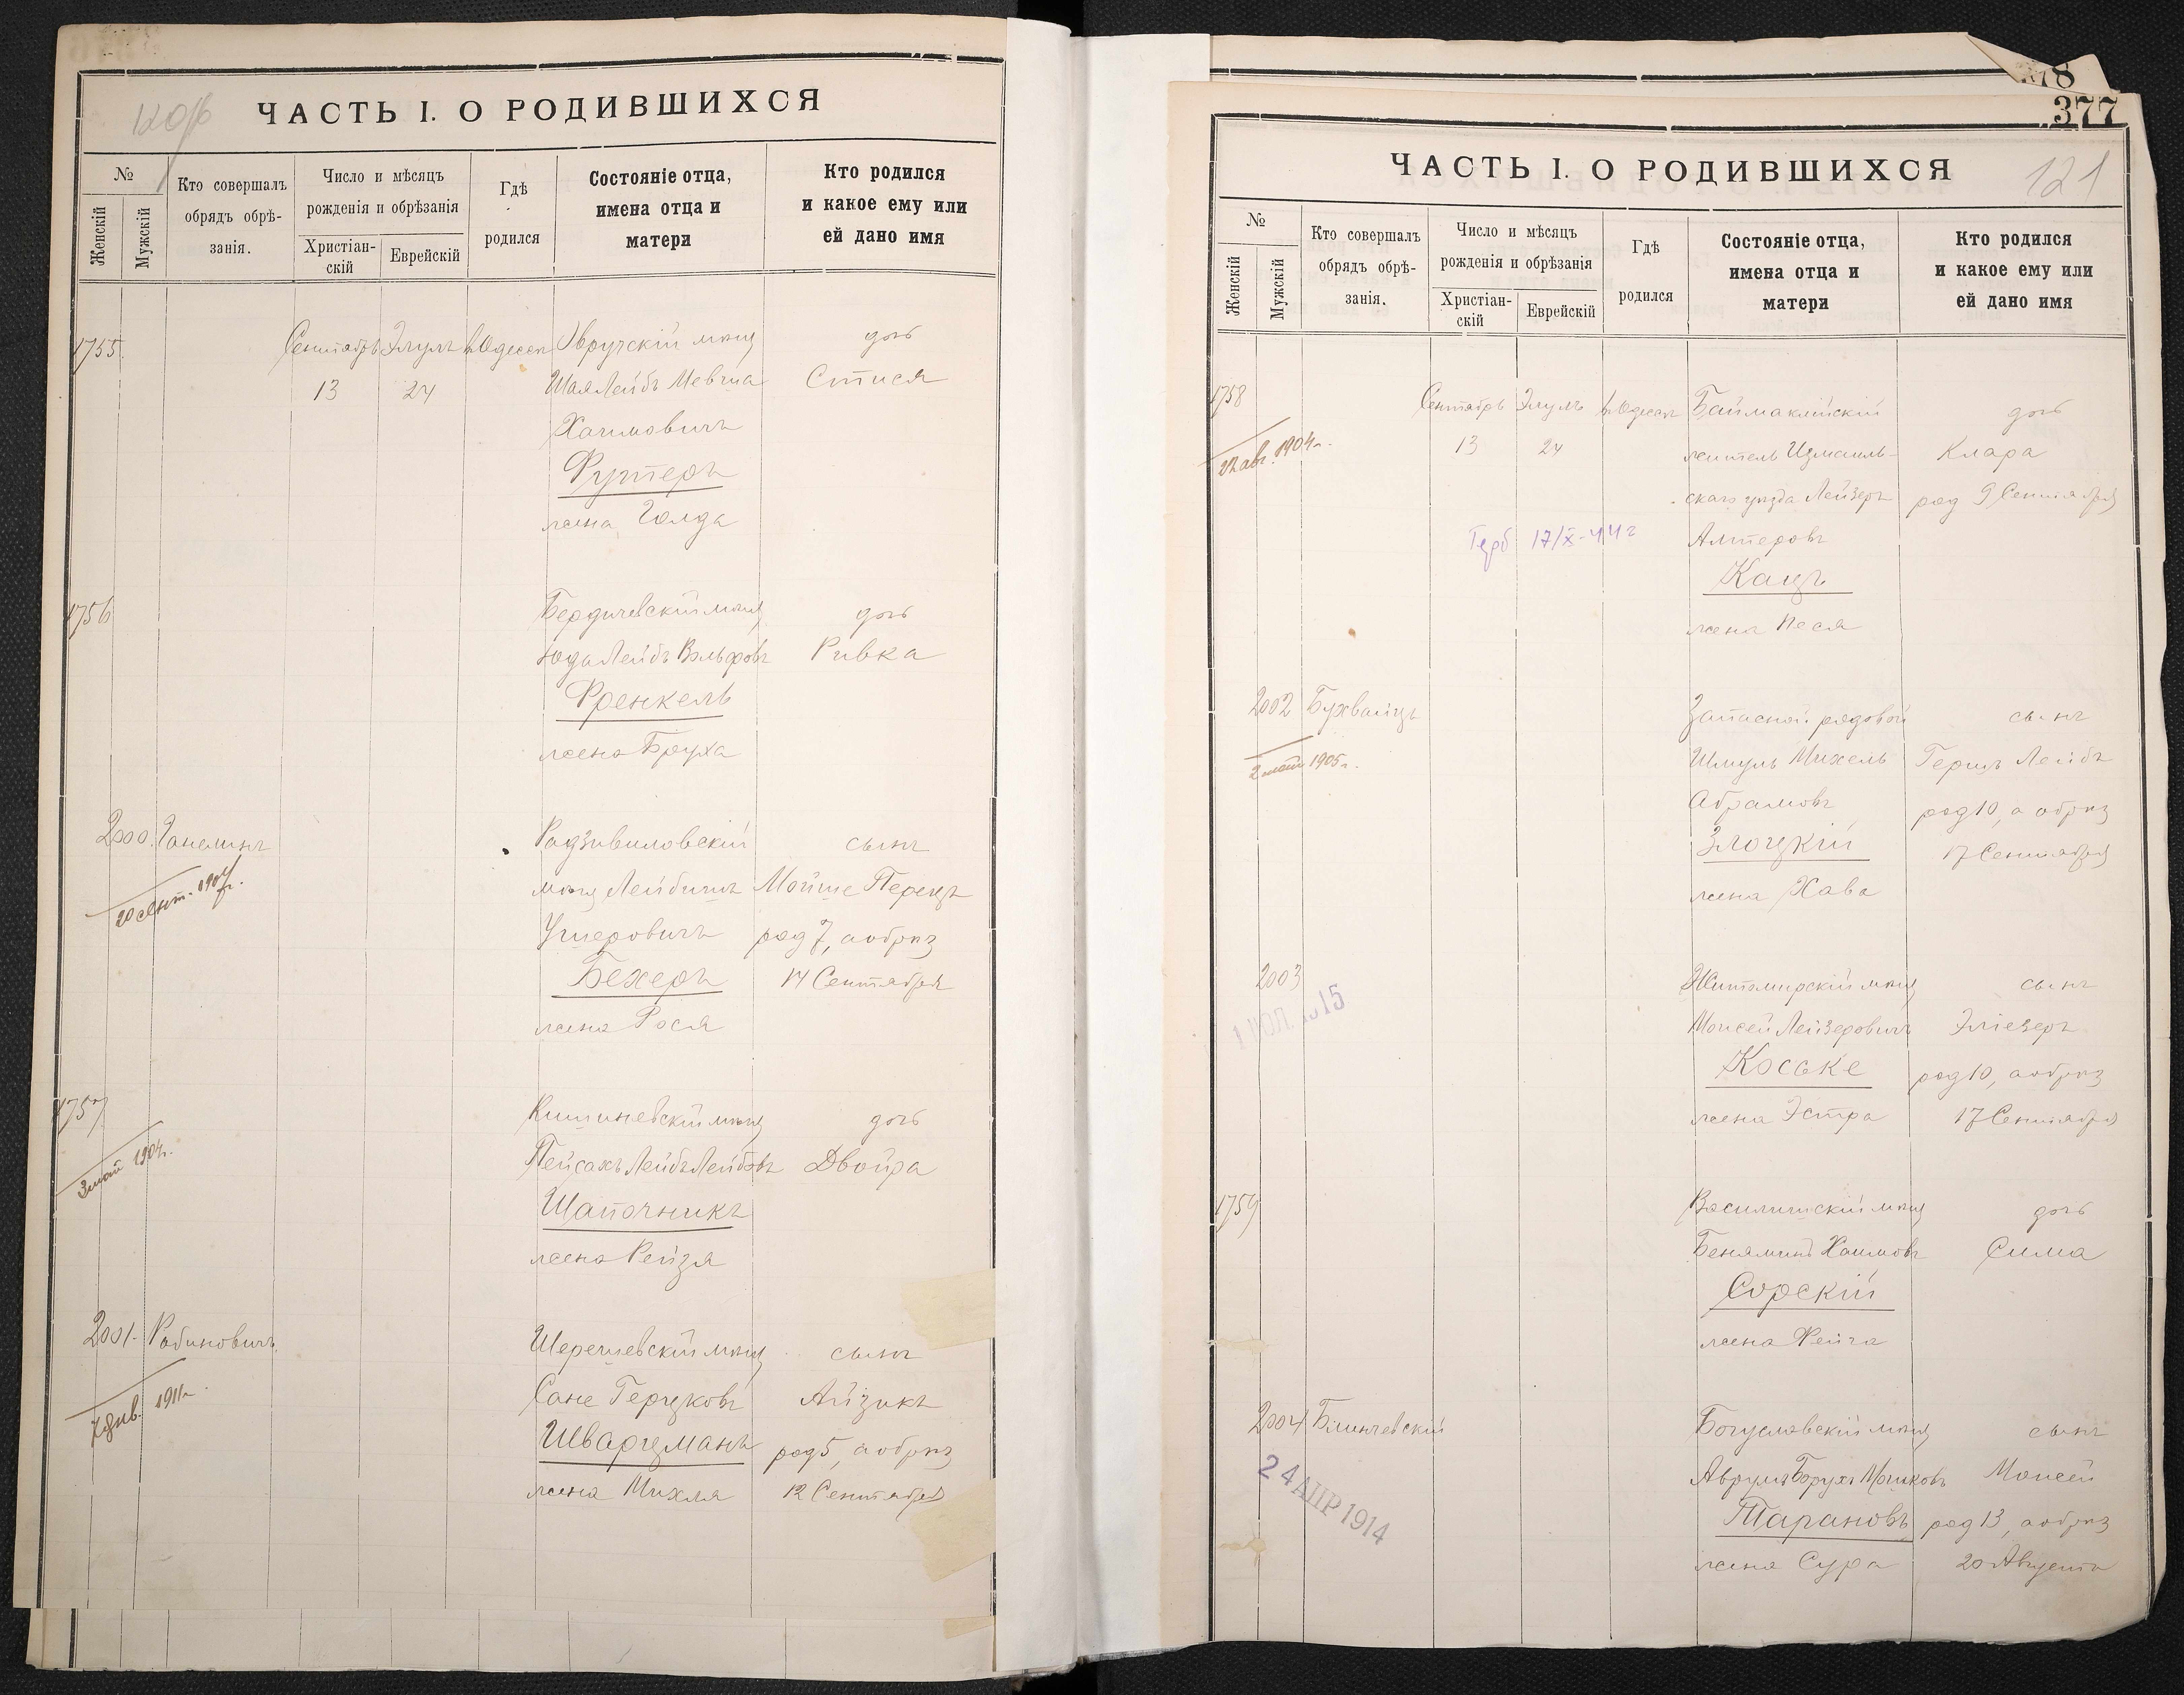 120/б
ЧАСТЬ I. О РОДИВШИХСЯ
№
Женскій
Мужскій
Кто совершалъ
обрядъ обрѣ-
занія.
Число и мѣсяцъ
рожденія и обрѣзанія
Христіан-
скій
Еврейскій
Гдѣ
родился
Состояніе отца,
имена отца и
матери
Кто родился
и какое ему или
ей дано имя
1755 Сентябрь Элулъ Овручскій мѣщ дочь
13 24 Шая Лейбъ Стися
Хаимовичъ
Футеръ
жена Голда
1756 Бердичевскій мѣщ дочь
Юда Лейбъ Вольфовъ Ривка
Френкель
жена Бруха
2000 Ганелинъ Радзивиловскій сынъ
мѣщ Лейбишъ Мойше Перецъ
20 сент. 1904г.
Ушеровичъ род 7, а обрѣз
Бехеръ 14 Сентября
жена Рося
1757 Кишиневскій мѣщ дочь
3 мая 1904г.
Пейсахъ Лейбъ Лейбовъ Двойра
Шапочникъ
жена Рейзя
2001 Рабиновичъ Шерешевскій мѣщ сынъ
7 янв. 1911г.
Сане Герцковъ Айзикъ
Шварцманъ род 5, а обрѣз
жена Михля 12 Сентября
378
377
ЧАСТЬ I. О РОДИВШИХСЯ
121
№
Женскій
Мужскій
Кто совершалъ
обрядъ обрѣ-
занія.
Число и мѣсяцъ
рожденія и обрѣзанія
Христіан-
скій
Еврейскій
Гдѣ
родился
Состояніе отца,
имена отца и
матери
Кто родился
и какое ему или
ей дано имя
1758 Сентябрь Элулъ Баймаклійскій дочь
22 авг. 1904г.
13 24 житель Измаиль- Клара
скаго уѣзда Лейзеръ род 9 Сентября
Герб 17/X-44г Алтеровъ
Кацъ
жена Песя
2002 Бухвайцъ Запасной рядовой сынъ
2 мая 1905г.
Шмуль Михель Герцъ Лейбъ
Абрамовъ род 10, а обрѣз
Злоцкій 17 Сентября
жена Хава
2003 Житомирскій мѣщ сынъ
1 ИЮЛ 1915
Моисей Лейзеровичъ Эліезеръ
Косаке род 10, а обрѣз
жена Эстра 17 Сентября
1759 Василишскій мѣщ дочь
Беняминъ Хаимовъ Сима
Сорскій
жена Фейга
2004 Блинчевскій Богуславскій мѣщ сынъ
24 АПР 1914
Аврумъ Борухъ Мошковъ Моисей
Тарановъ род 13, а обрѣз
жена Сура 20 Августа